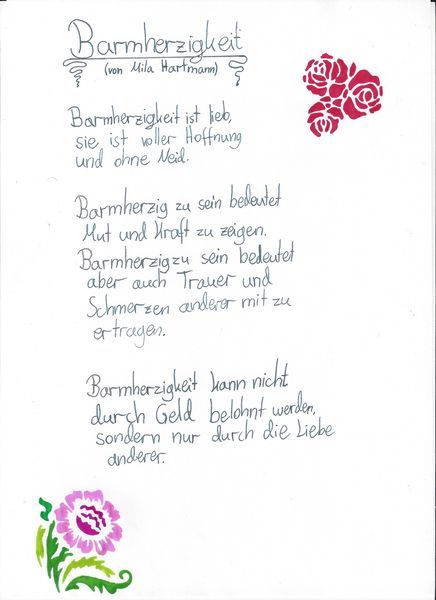 Barmherzigkeit
(von Mila Hartmann)
Barmherzigkeit ist lieb,
sie ist voller Hoffnung
und ohne Neid.
Barmherzig zu sein bedeutet
Mut und Kraft zu zeigen.
Barmherzig zu sein bedeutet
aber auch Trauer und
Schmerzen anderer mit zu
ertragen.
Barmherzigkeit kann nicht
durch Geld belohnt werden,
sondern nur durch die Liebe
anderer.